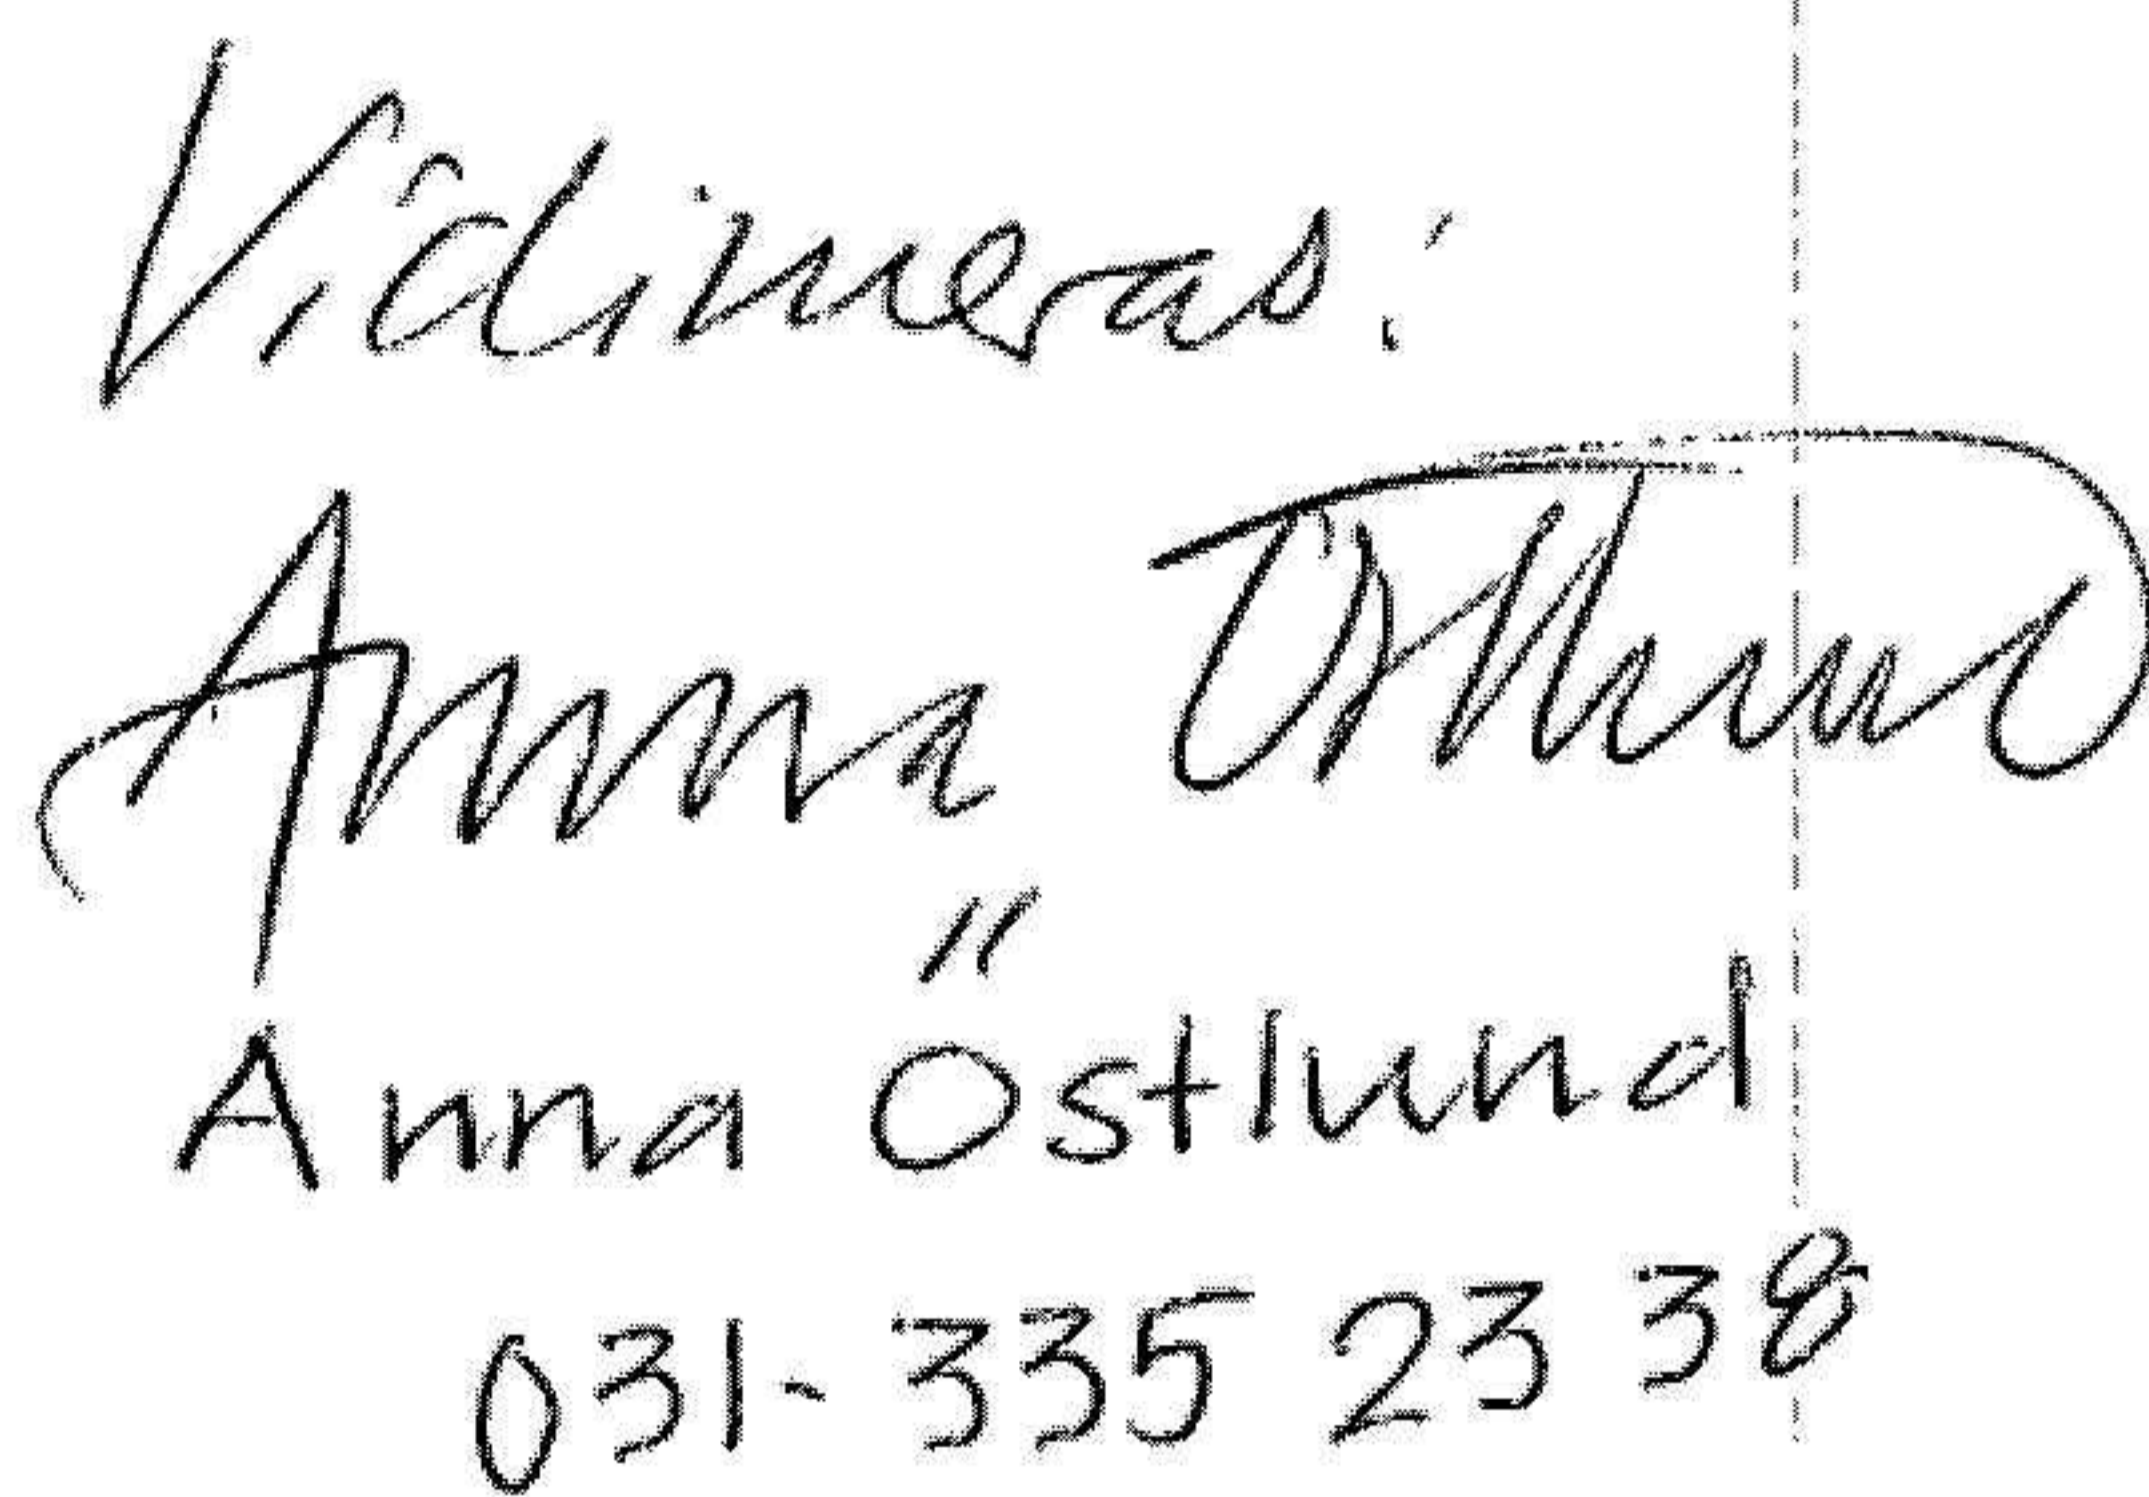 Vidimeras:
Anna Östlund
Anna Östlund
031-335 23 38